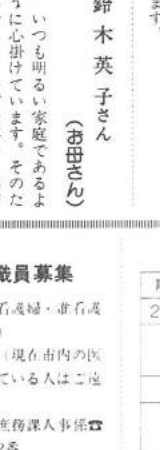 す。
鈴木英子さん
(お母さん)
いつも明るい家庭であるよ
うに心掛けています。そのた
職員募集
石護婦・准石護
（現在市内の医
ている人はご遠
庶務課人事係☎
2